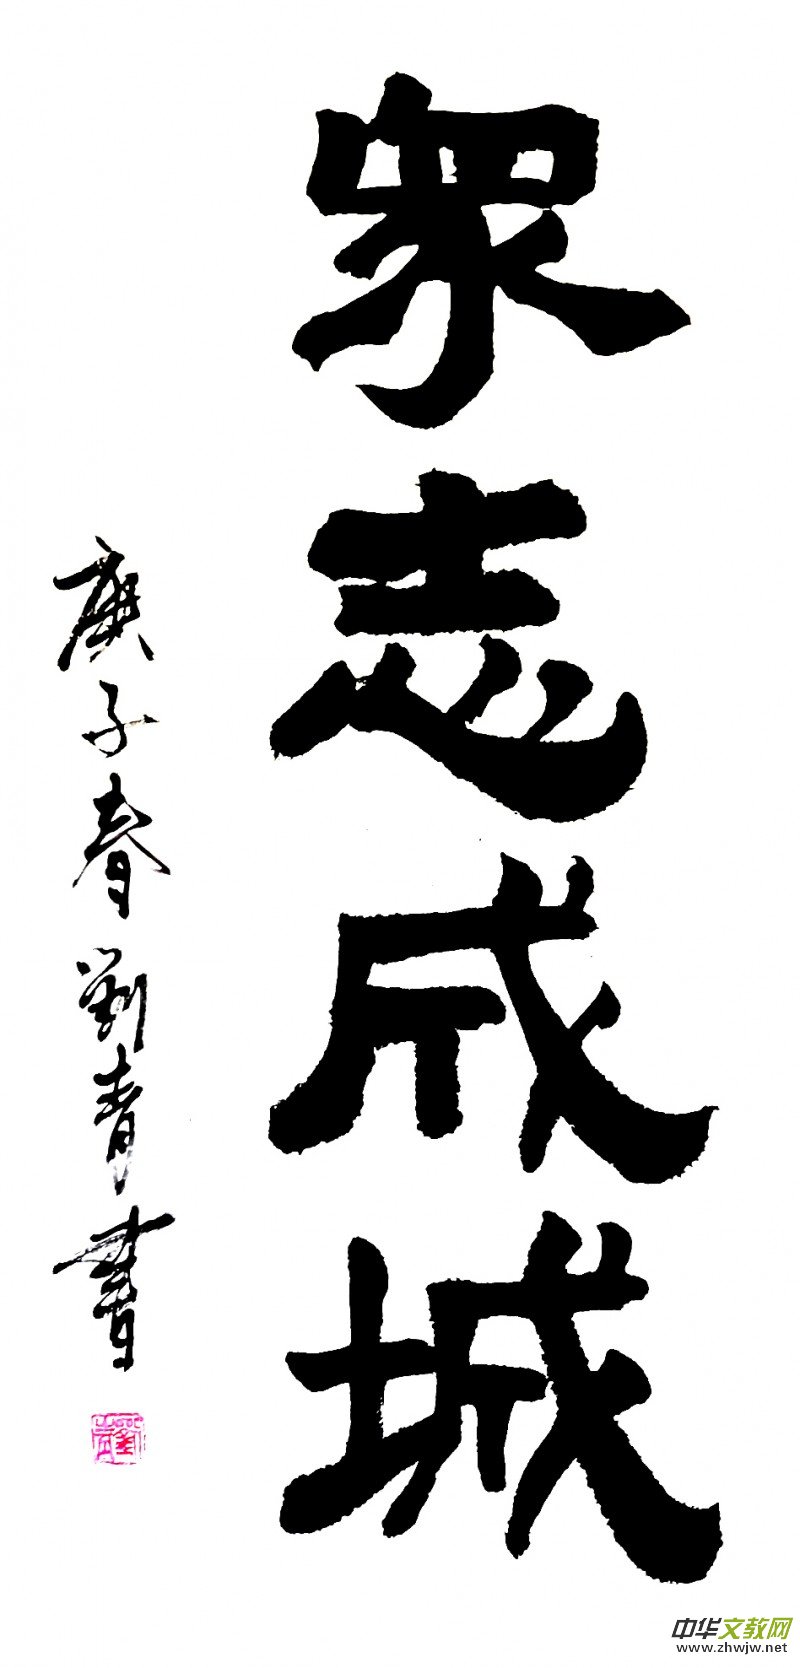 眾志成城
庚子春劉青書
中华文教网
www.zhwjw.net